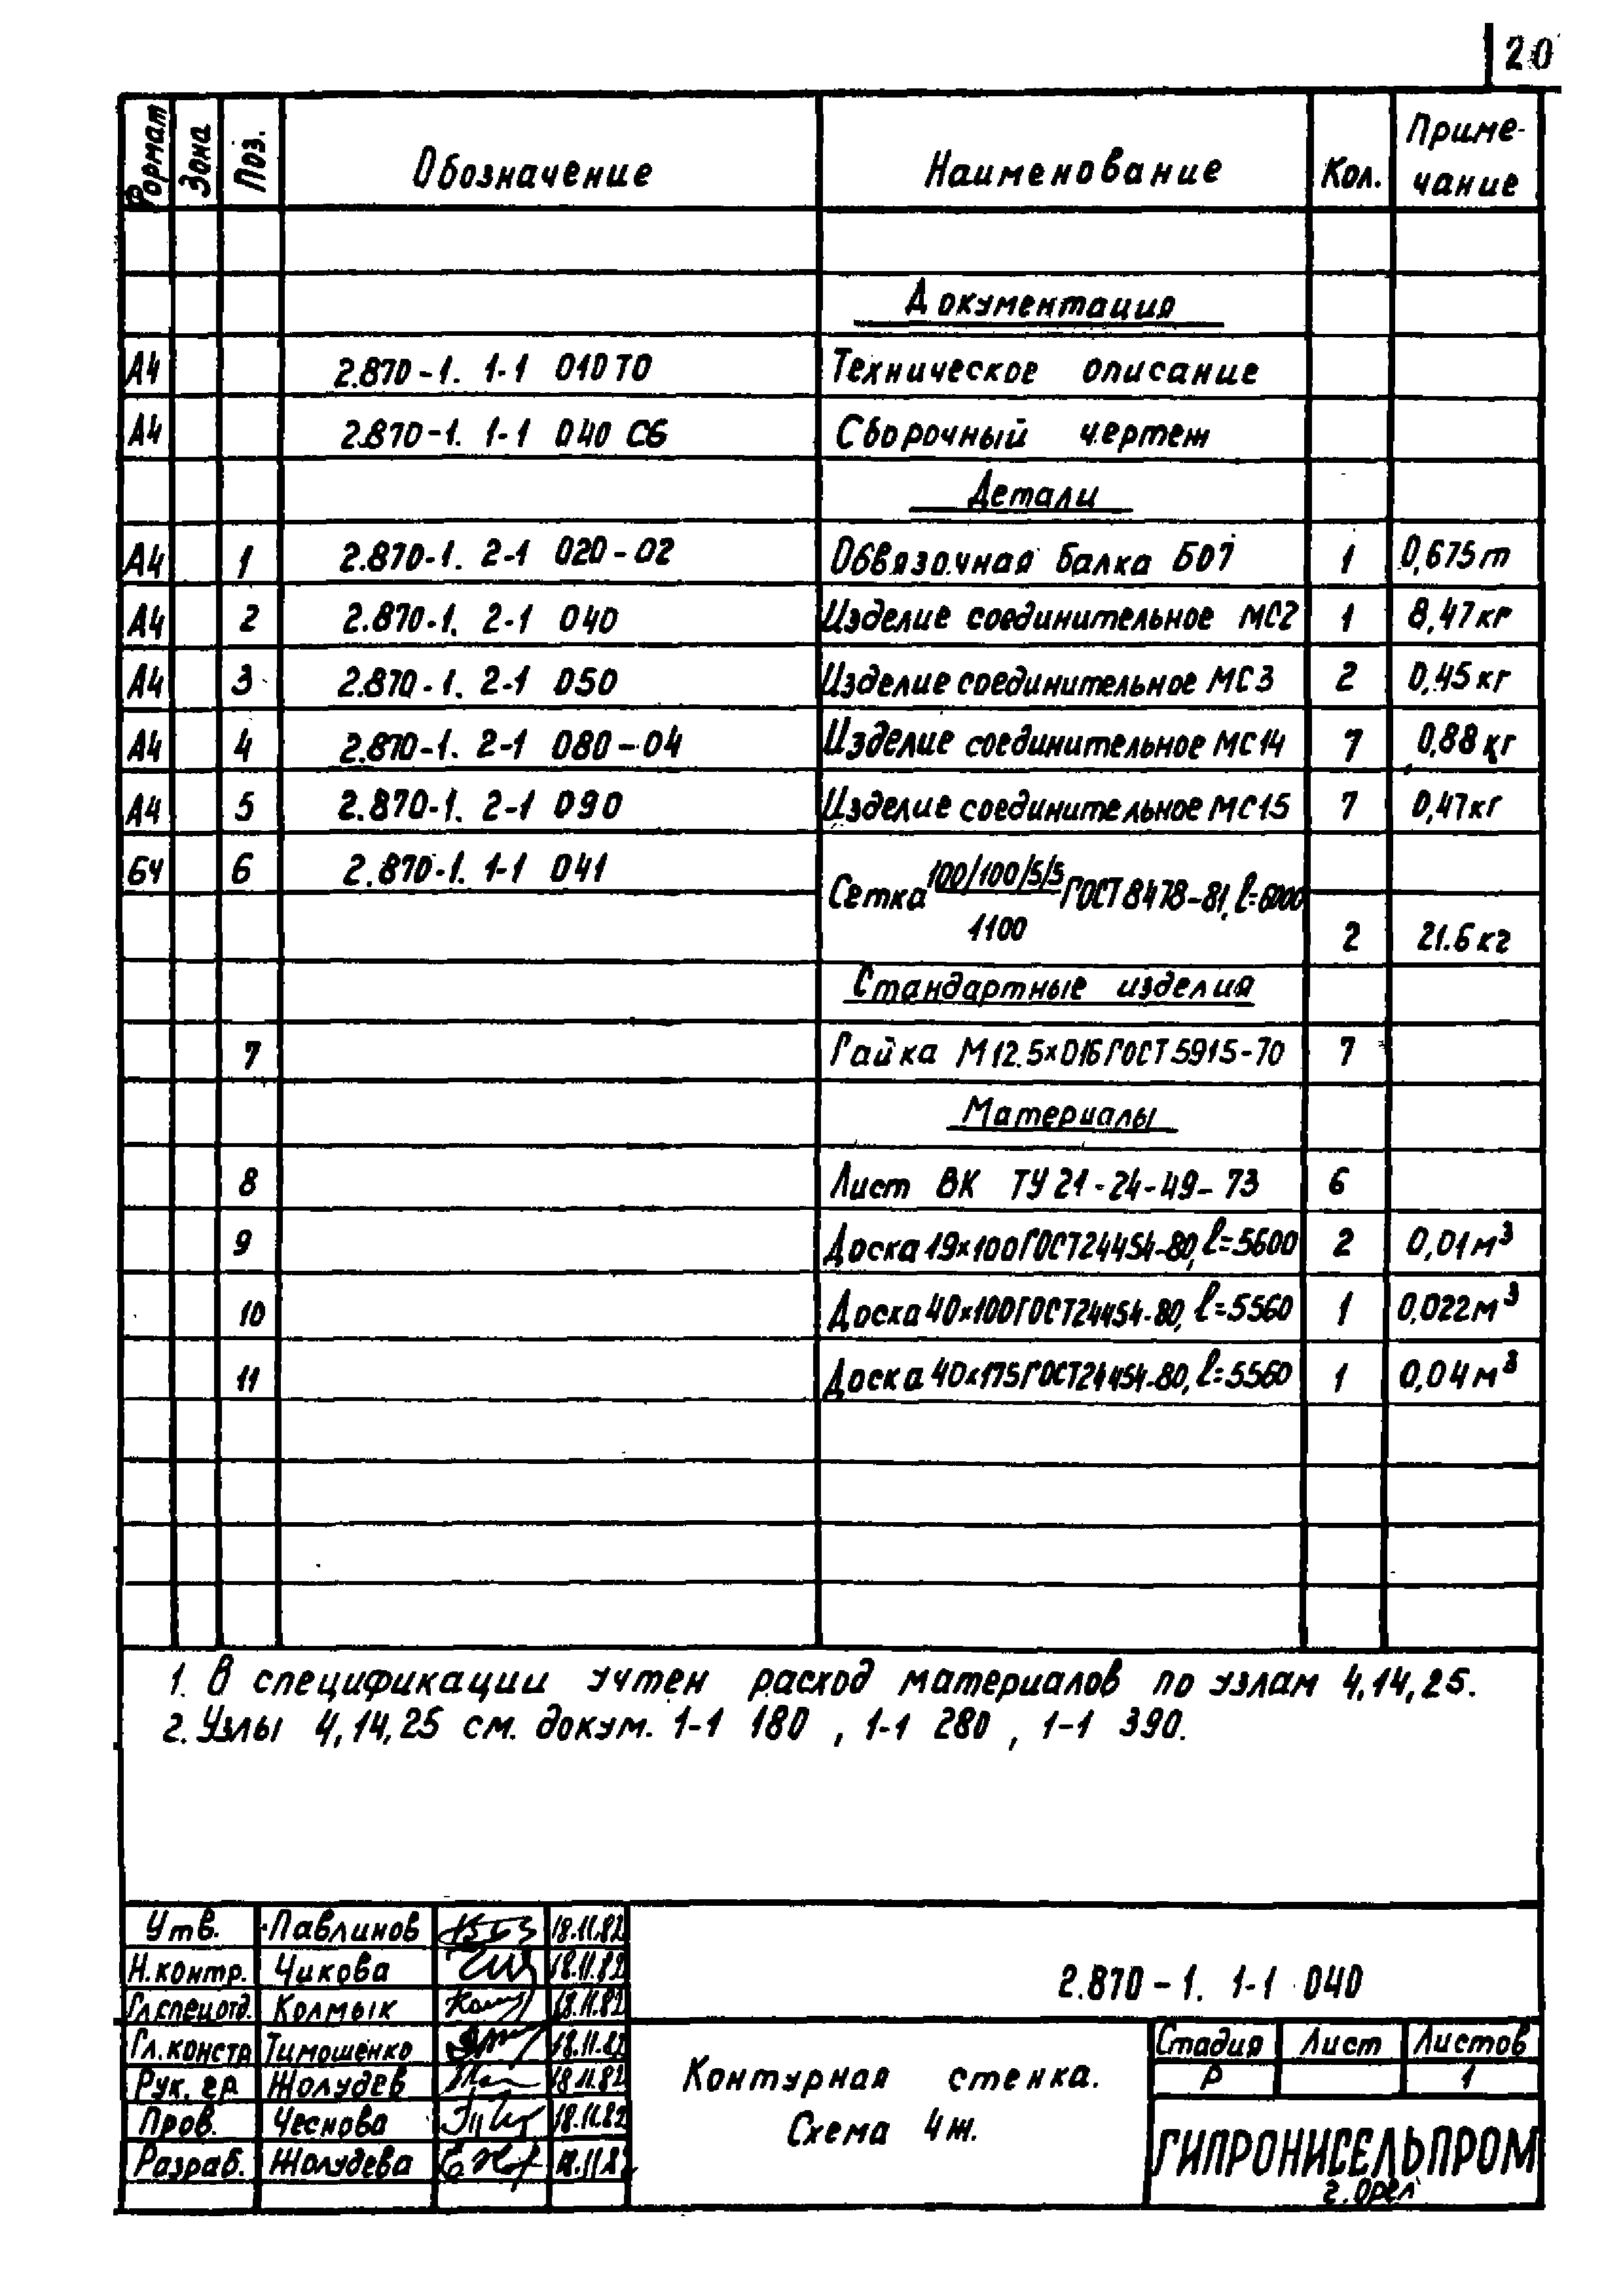 20
Формат Зона Поз. Обозначение Наименование Кол. Приме-
чание
Документация
А4 2.870-1. 1-1 010 ТО Техническое описание
А4 2.870-1. 1-1 040 СБ Сборочный чертеж
Детали
А4 1 2.870-1. 2-1 020-02 Обвязочная балка Б07 1 0,675т
А4 2 2.870-1. 2-1 040 Изделие соединительное МС2 1 8,47кг
А4 3 2.870-1. 2-1 050 Изделие соединительное МС3 2 0,45кг
А4 4 2.870-1. 2-1 080-04 Изделие соединительное МС14 7 0,88кг
А4 5 2.870-1. 2-1 090 Изделие соединительное МС15 7 0,47кг
БЧ 6 2.870-1. 1-1 041 Сетка 100/100/5/5 ГОСТ 8478-81, ℓ=6000
1100 2 21.6кг
Стандартные изделия
7 Гайка М12.5×016 ГОСТ 5915-70 7
Материалы
8 Лист ВК ТУ 21-24-49-73 6
9 Доска 19×100 ГОСТ 24454-80, ℓ=5600 2 0,01м³
10 Доска 40×100 ГОСТ 24454-80, ℓ=5560 1 0,022м³
11 Доска 40×175 ГОСТ 24454-80, ℓ=5560 1 0,04м³
1. В спецификации учтен расход материалов по узлам 4,14,25.
2. Узлы 4,14,25 см. докум. 1-1 180, 1-1 280, 1-1 390.
Утв. Павлинов 18.11.82
Н.контр. Чикова 18.11.82
Гл.спец.отд. Колмык 18.11.82
Гл.констр Тимошенко 18.11.82
Рук. гр Жолудев 18.11.82
Пров. Чеснова 18.11.82
Разраб. Жолудева
2.870-1. 1-1 040
Контурная стенка.
Схема 4ж.
Стадия Лист Листов
Р 1
ГИПРОНИСЕЛЬПРОМ
г. Орел